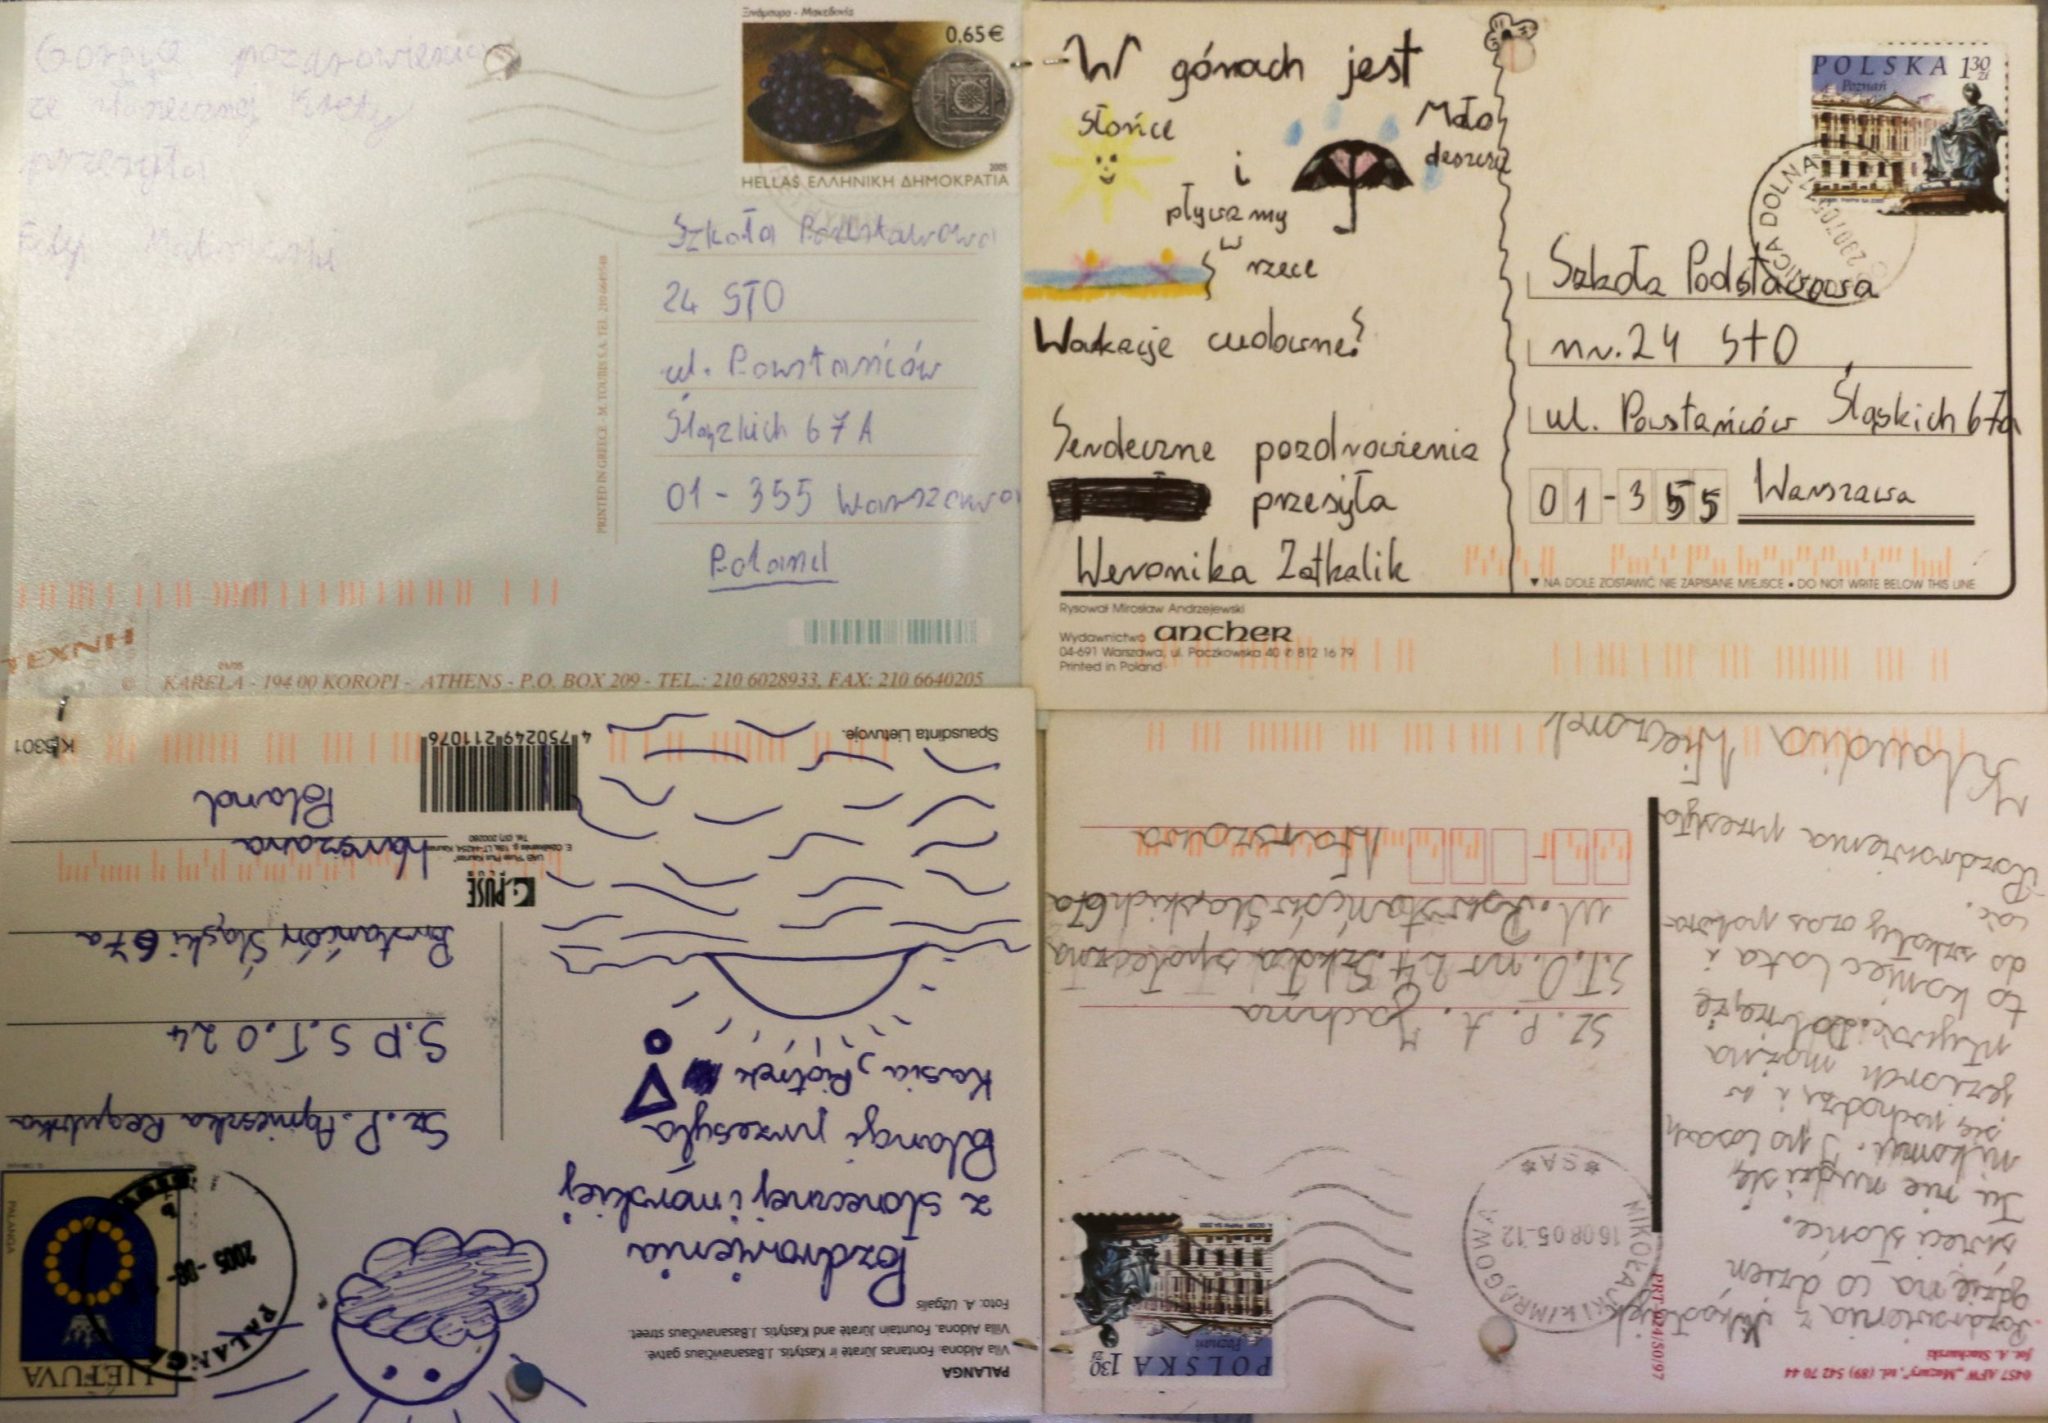 Gorące pozdrowienia
ze słonecznej Krety
przesyła
Ξινόμαυρο - Μακεδονία
0.65€
2005
HELLAS ΕΛΛΗΝΙΚΗ ΔΗΜΟΚΡΑΤΙΑ
Szkoła Podstawowa
24 STO
ul. Powstańców
Śląskich 67A
01-355 Warszawa
Poland
PRINTED IN GREECE - M. TOUBIS S.A. TEL. 210 6640548
TEXNH
© KARELA - 194 00 KOROPI - ATHENS - P.O. BOX 209 - TEL.: 210 6028933, FAX: 210 6640205
W górach jest
słońce
Mało
deszczu
i
pływamy
w
rzece
Wakacje cudowne!
Serdeczne pozdrowienia
przesyła
Weronika Zatkalik
POLSKA 1 30 zł
Poznań
Szkoła Podstawowa
nr. 24 STO
ul. Powstańców Śląskich 67a
01-355 Warszawa
▼ NA DOLE ZOSTAWIĆ NIE ZAPISANE MIEJSCE • DO NOT WRITE BELOW THIS LINE
Rysował Mirosław Andrzejewski
Wydawnictwo ancher
04-691 Warszawa, ul. Paczkowska 40 ✆ 812 16 79
Printed in Poland
PALANGA
Vila Aldona. Fontanas Jūratė ir Kastytis. J.Basanavičiaus gatvė.
Villa Aldona. Fountain Jūratė and Kastytis. J.Basanavičiaus street.
Foto. A. Užgalis
Pozdrowienia
z słonecznej i morskiej
Palangi przesyła
Kasia, Piotrek
i
LIETUVA
PALANGA
PALANGA
2005-08-
Sz. P. Agnieszka
S.P S.T.O 24
Powstańców Śląski 67a
Warszawa
Poland
PUSĖ
4 750249 211076
K 5301
Spausdinta Lietuvoje.
0457 AFW „Mazury", tel. (89) 542 70 44
fot. A. Stachurski
PRT-1024/50/97
Pozdrowienia z
gdzie na co dzień
świeci słońce.
Tu nie nudzi się
nikomu. I po lasach
się pochodzi i w
jeziorach można
pływać. Dotrważę
to koniec lata i
do szkoły czas
Pozdrowienia przesyła
Klaudia Wieczorek
POLSKA 1 30 zł
Poznań
MIKOŁAJKI K/MRĄGOWA
16 08 05-12
*SA*
SZ. P. A. Jachna
S.T.O. nr 24 Szkoła społeczna
ul. Powstańców Śląskich 67a
Warszawa